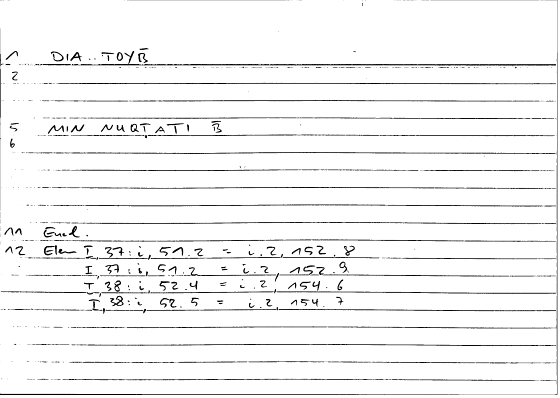 1 DIA .. TOYB̄
2
5 MIN NUQṬATI B̄
6
11 Eucl.
12 Elem I, 37: i, 51.2 = i.2, 152.8
I, 37: i, 51.2 = i.2, 152.9
I, 38: i, 52.4 = i.2, 154.6
I, 38: i, 52.5 = i.2, 154.7